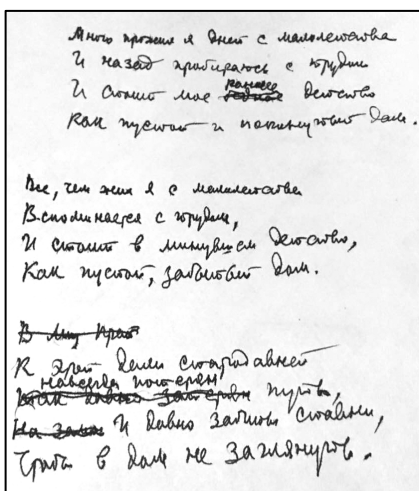 Много прожил я дней с малолетства
И назад пробираюсь с трудом
И стоит мое раннее детство
Как пустой и покинутый дом.
Все, чем жил я с малолетства
Вспоминается с трудом,
И стоит в минувшем детство,
Как пустой, забытый дом.
К этой дали стародавней
навсегда потерян
путь,
И давно забиты ставни,
Чтобы в дом не заглянуть.